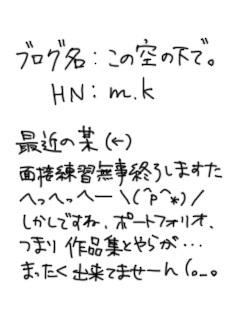 ブログ名：この空の下で。
HN：m.k
最近の某（←）
面接練習無事終ろしますた
へっへっへー＼(^P^*)／
しかしですね、ポートフォリオ、
つまり作品集とやらが…
まったく出来てませーん(。_。